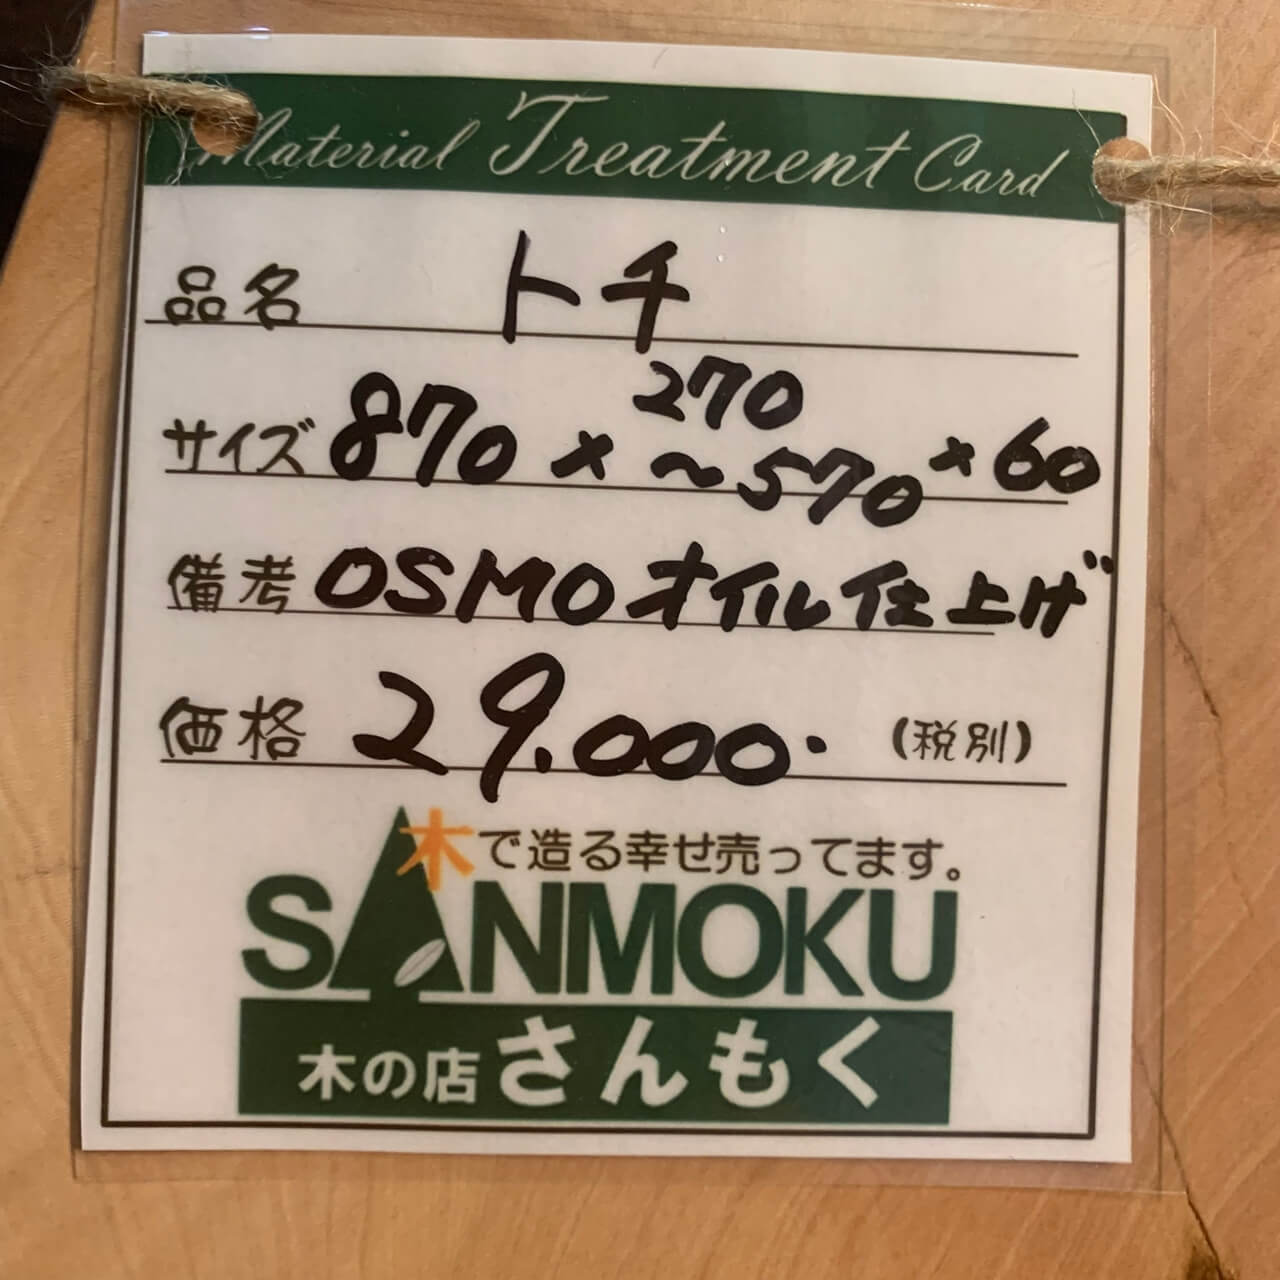 Material Treatment Card
品名 トチ
サイズ 870 × 270 ~570 × 60
備考 OSMO オイル仕上げ
価格 29.000. (税別)
木で造る幸せ売ってます。
SANMOKU
木の店 さんもく